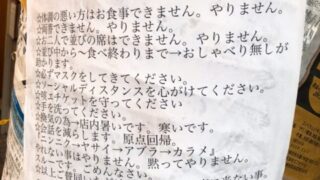 ☆体調の悪い方はお食事できません。やりません。
☆両替できません。やりません。
☆お二人で並びの席はできません。やりません。
☆並び中から〜食べ終わりまで→おしゃべり無しが
助かります。
☆必ずマスクをしてきてください。
☆ソーシャルディスタンスを心がけてください。
☆咳エチケットを守ってください
☆手を洗ってください。
☆換気の為→店内暑いです。寒いです。
☆会話を減らします。原点回帰。
『ニンニク→ヤサイ→アブラ→カラメ』
やれない事はやりません。黙ってやりません。
スルーです。ごめんなさい。
☆以上ご賛同いた